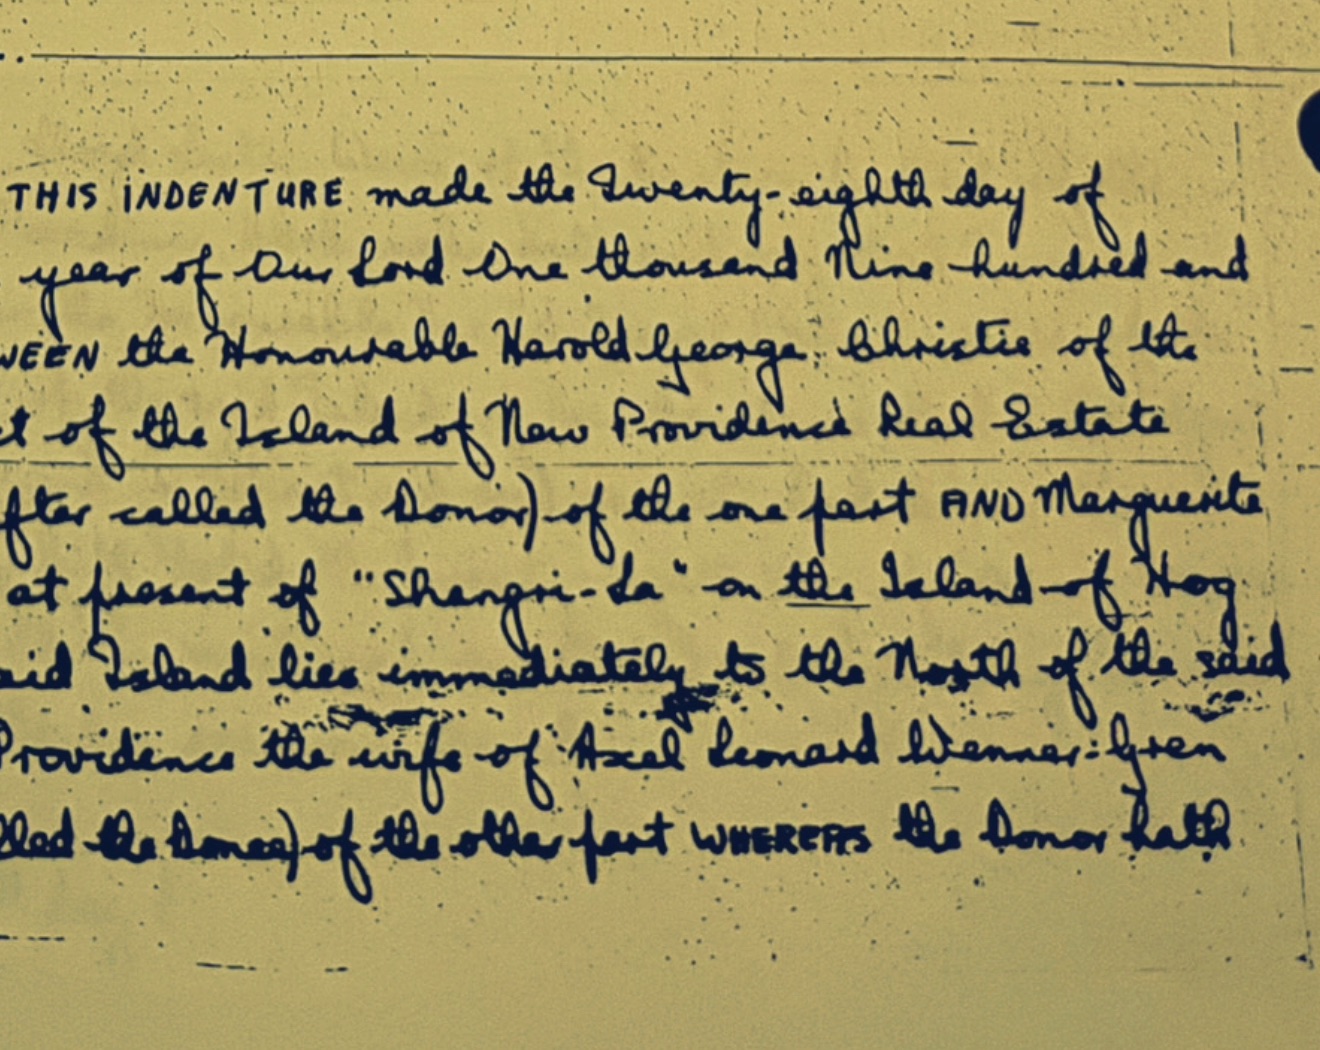 THIS INDENTURE made the Twenty-eighth day of
year of Our Lord One thousand Nine hundred and
WEEN the Honourable Harold George Christie of the
ct of the Island of New Providence Real Estate
fter called the Donor) of the one part AND Marguerite
at present of "Shangri-La" on the Island of Hog
aid Island lies immediately to the North of the said
Providence the wife of Axel Leonard Wenner-Gren
lled the Donee) of the other part WHEREAS the Donor hath